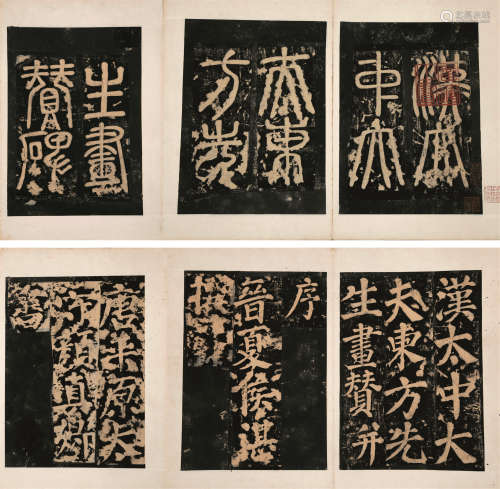 漢太
中大
夫東
方先
生畫
贊碑
漢太中大
夫東方先
生畫賛并
序
晉夏侯湛
撰
唐平原太
守顏真卿